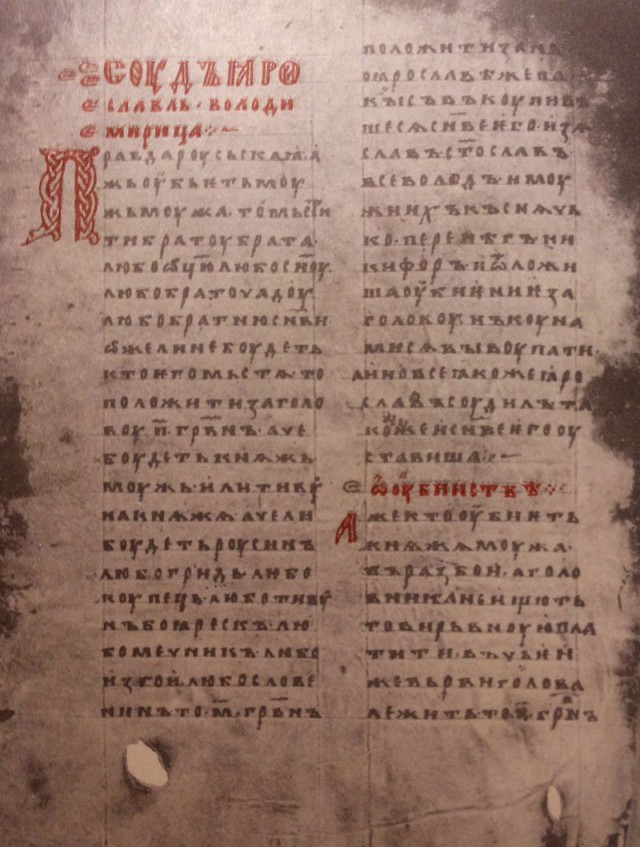 СОУДЪ ꙖРО
СЛАВЛЬ · ВОЛОДИ
МИРИЦА
Правда роусьскаꙗ · а
жь оубьѥть моу
жь моужа · то мьсти
ти братоу брата ·
любо ѡц҃ю любо сн҃оу ·
любо братоучадоу ·
любо братню сн҃ви ·
ѡже ли не боудеть
кто ѥго мьстѧ то
положити за голо
воу · п҃ · грв҃нъ · аче
боудеть кнѧжь
моужь · или тивоу
на кнѧжѧ · аче ли
боудеть роусинъ
любо гридь · любо
коупець · любо тивоу
нъ боꙗрескъ · лю
бо мечникъ · любо
изгои · любо слове
нинъ · то · м҃ · грв҃нъ
положити за нь ·
по ꙗрославѣ же па
кы съвъкоупивъ
шесѧ сн҃ве ѥго · изѧ
славъ · ст҃ославъ ·
всеволодъ · и моу
жи ихъ · къснѧчь
ко · перенѣгъ · ни
кифоръ · и ѡложи
ша оубиѥниѥ за
головоу · нъ коуна
ми сѧ выкоупати ·
а ино все ꙗкоже ꙗро
славъ соудилъ · та
коже и сн҃ве ѥго оу
ставиша
ѡ оубииствѣ
Аже кто оубиѥть
кнѧжа моужа ·
въ разбои · а голо
вника не ищють
то вирьвноую пла
тити · въ чьѥи
же вьрви голова
лежить то · п҃ · грв҃нъ